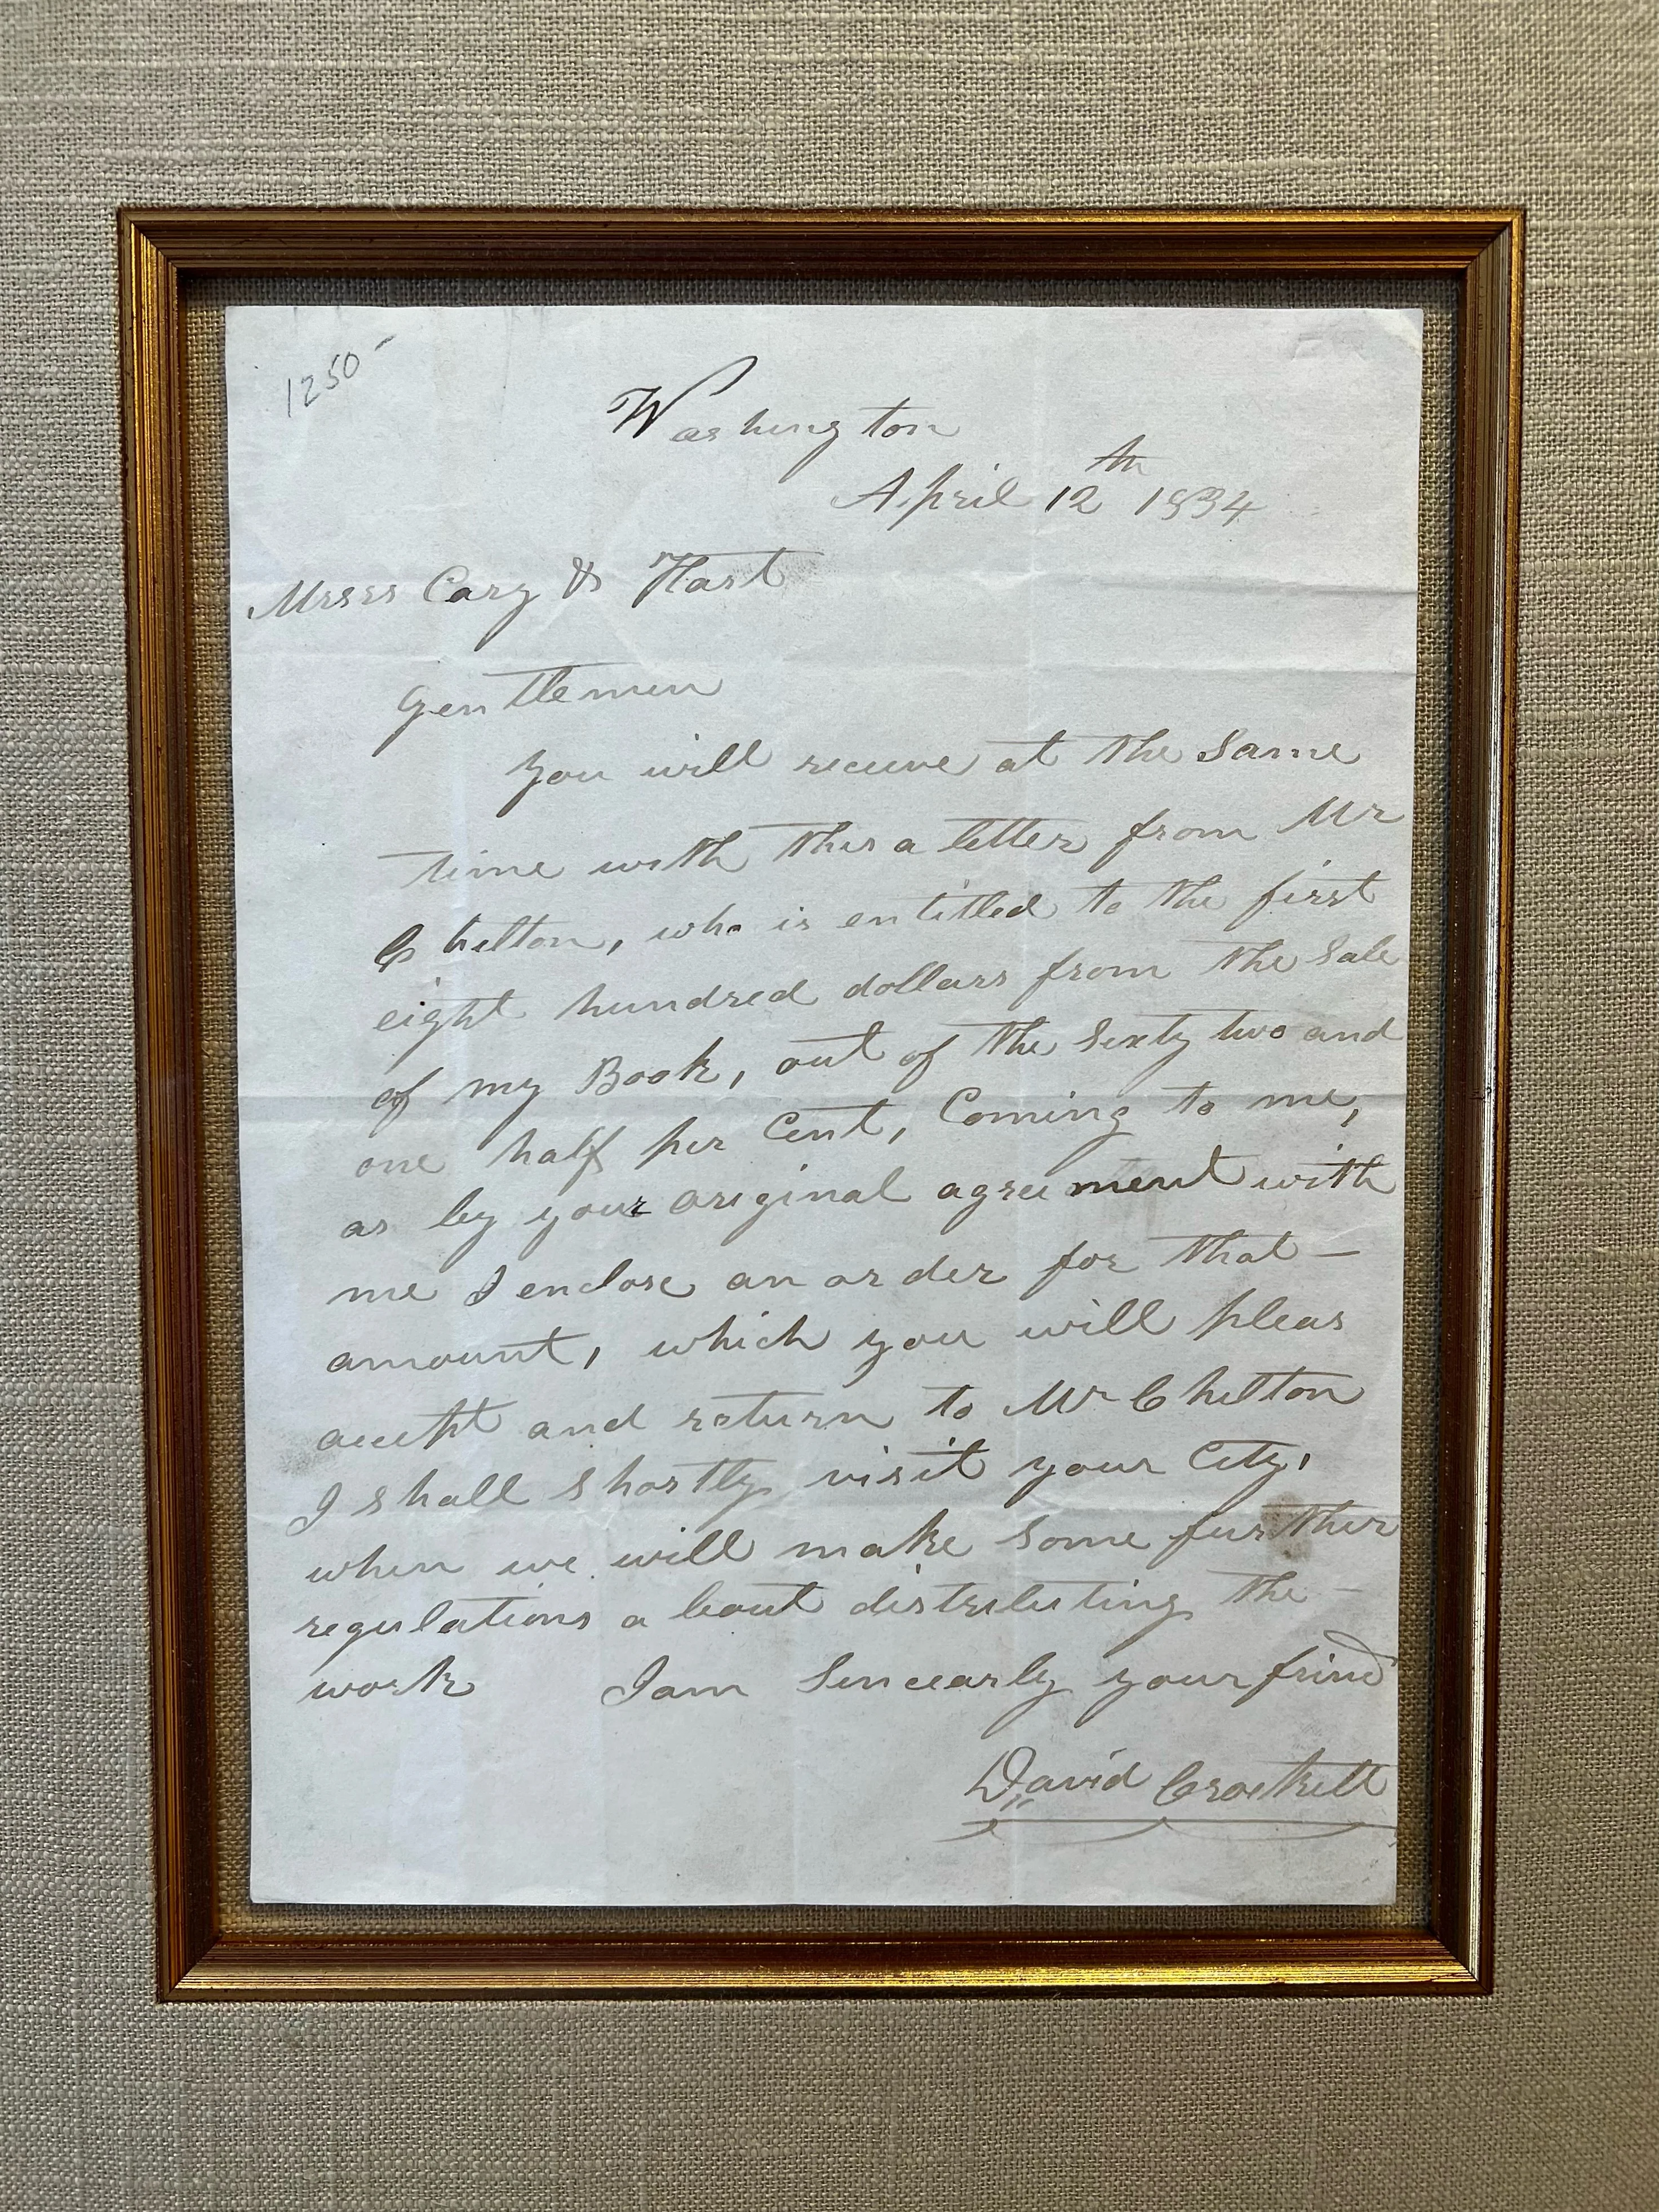 1250-
Washington
April 12th 1834
Messrs Cary & Hart
Gentlemen
you will receive at the same
time with this a letter from Mr
Chilton, who is entitled to the first
eight hundred dollars from the Sale
of my Book, out of the Sixty two and
one half per Cent, Coming to me,
as by your original agreement with
me I enclose an order for that —
amount, which you will pleas
accept and return to Mr Chilton
I shall shortly visit your City,
when we will make some further
regulations about distributing the —
work I am Sincearly your frind
David Crockett